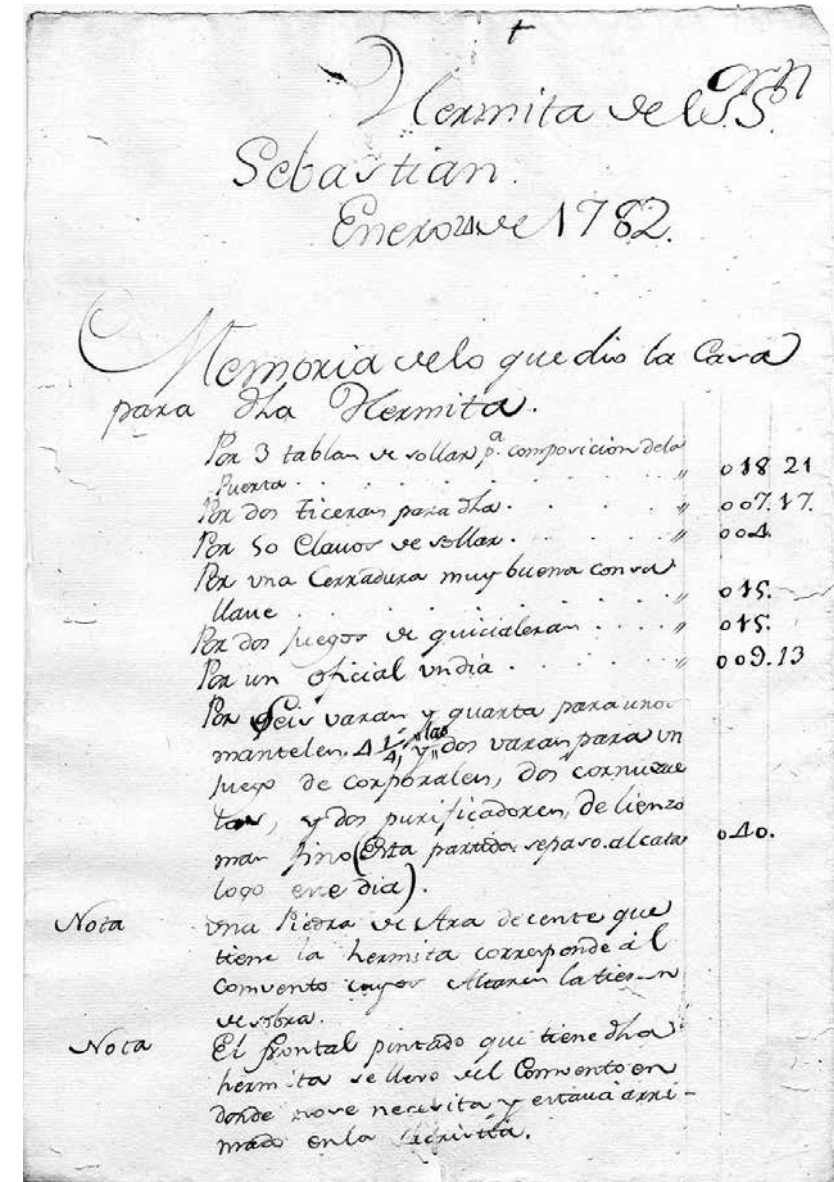 †
Hermita del S.S.
Sebastian.
Enero 24 de 1782.
Memoria delo que dio la Casa
para dha Hermita.
Por 3 tablas de sollar p.ª composicion dela
Puerta . . . . . . . . . . " 018 21
Por dos ticeras para dha . . . . " 007.17.
Por 50 Clavos de sollar . . . . " 004.
Por una Cerradura muy buena con su
llave . . . . . . . . . . " 015.
Por dos juegos de quicialeras . . . . " 015.
Por un oficial un dia . . . . . " 009.13
Por Seis varas y quarta para unos
manteles. 4 1/4, y las dos varas para un
juego de corporales, dos cornu
tas, y dos purificadores, de lienzo
mas fino (Esta partida se paso al cata 040.
logo ese dia).
Nota una Piedra de Ara decente que
tiene la hermita corresponde al
Comvento cuyos Altares la tienen
de sobra.
Nota El frontal pintado que tiene dha
hermita se llevo del Comvento en
donde no se necesita y estava arri-
mado en la Sacristia.